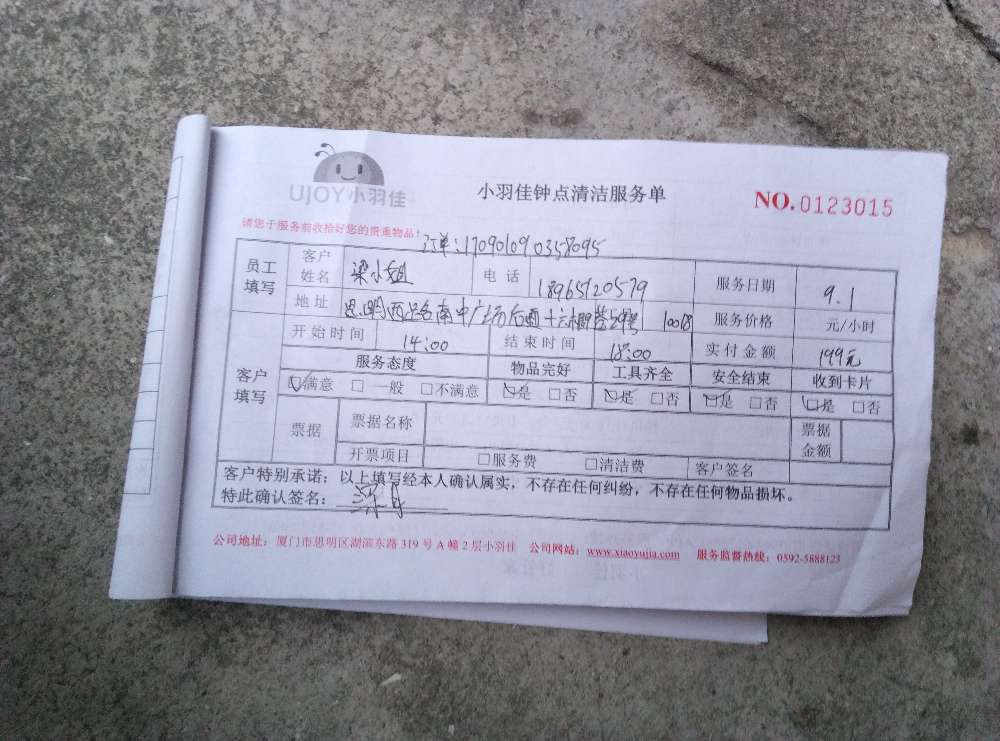 UJOY小羽佳
小羽佳钟点清洁服务单
NO.0123015
请您于服务前收拾好您的贵重物品!
订单:170901090358095
员工填写 客户姓名 梁小姐 电话 18965120579 服务日期 9.1
地址 思明西路南中广场后面十六栅 59号 10018 服务价格 元/小时
客户填写 开始时间 14:00 结束时间 18:00 实付金额 199元
服务态度 物品完好 工具齐全 安全结束 收到卡片
☑满意 □一般 □不满意 ☑是 □否 ☑是 □否 ☑是 □否 ☑是 □否
票据 票据名称 票据金额
开票项目 □服务费 □清洁费 客户签名
客户特别承诺:以上填写经本人确认属实,不存在任何纠纷,不存在任何物品损坏。
特此确认签名:
公司地址:厦门市思明区湖滨东路 319 号 A 幢 2 层小羽佳 公司网站:www.xiaoyujia.com 服务监督热线:0592-5888123